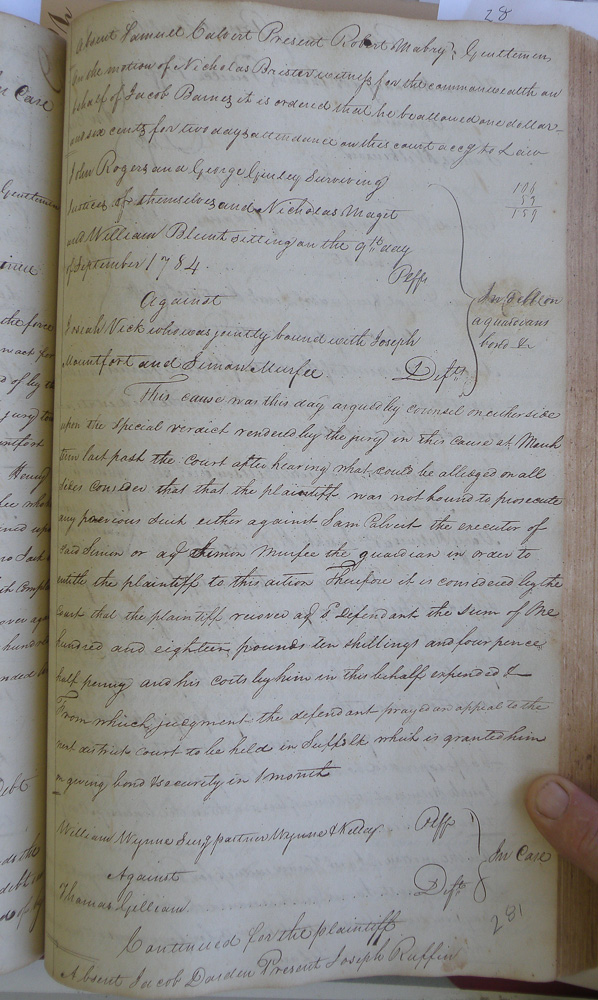 28
Absent Samuel Calvert Present Robert Mabry; Gentlemen
On the motion of Nicholas Brister witness for the commonwealth on
behalf of Jacob Barnes it is ordered that he be allowed one dollar
and six cents for two days attendance on this court accg to Law
John Rogers and George Gurley Surviving
Justices of themselves and Nicholas Maget
and William Blunt sitting on the 9th day
of September 1784.
Plffs
106
53
159
Against
In debt on
a guardians
bond &c
Josiah Vick who was jointly bound with Joseph
Mountfort and Simon Murfee
Defts
This cause was this day argued by counsel on either side
upon the Special verdict rendered by the jury in this cause at March
term last past the court after hearing what could be alledged on all
sides consider that that the plaintiff was not bound to prosecute
any previous suit either against Sam Calvert the executor of
said Simon or agt Simon Murfee the guardian in order to
entitle the plaintiff to this action Therefore it is considered by the
Court that the plaintiff recover agt Defendant the sum of One
hundred and eighteen pounds ten shillings and four pence
half penny and his costs by him in this behalf expended &
From which judgment the defendant prayed an appeal to the
next district court to be held in Suffolk which is granted him
on giving bond & security in 1 month
William Wynne Surg partner Wynne & Kelley
Plff
Against
In Case
Thomas Gilliam
Deft
281
Continued for the plaintiff
Absent Jacob Darden Present Joseph Ruffin
In Case
Gentlemen
Debt